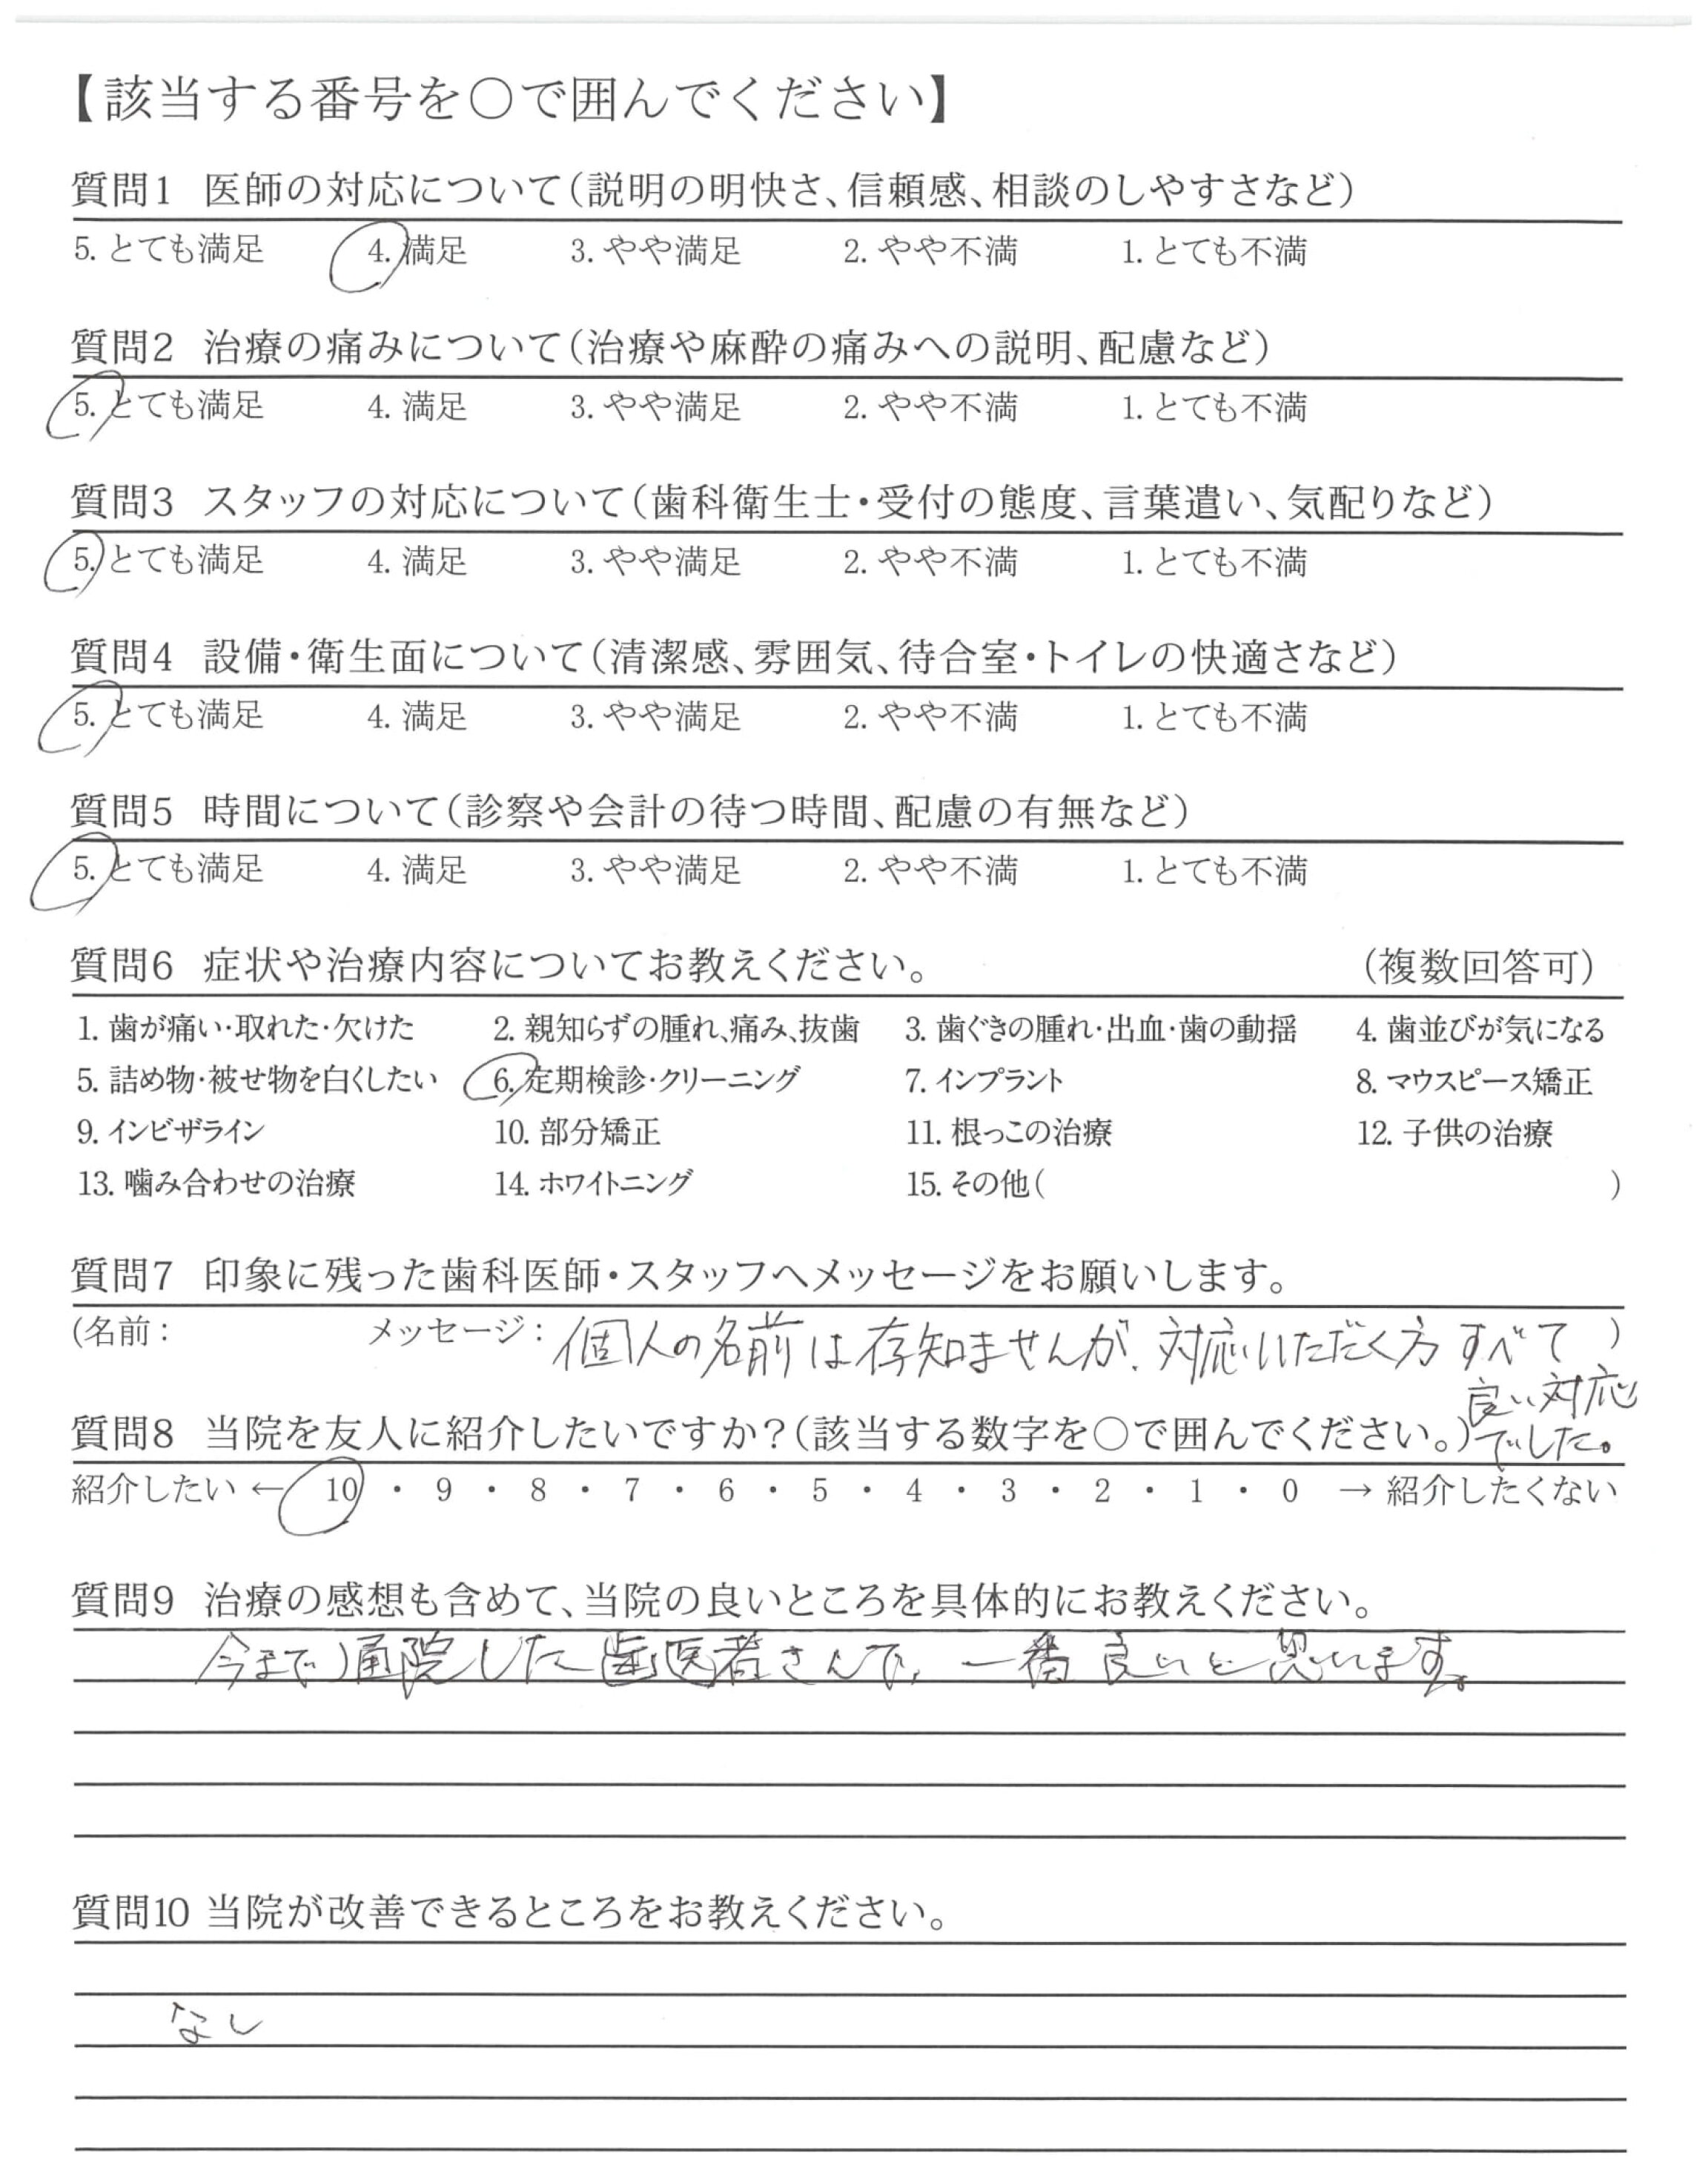 【該当する番号を〇で囲んでください】
質問1 医師の対応について(説明の明快さ、信頼感、相談のしやすさなど)
5. とても満足 4. 満足 3. やや満足 2. やや不満 1. とても不満
質問2 治療の痛みについて(治療や麻酔の痛みへの説明、配慮など)
5. とても満足 4. 満足 3. やや満足 2. やや不満 1. とても不満
質問3 スタッフの対応について(歯科衛生士・受付の態度、言葉遣い、気配りなど)
5. とても満足 4. 満足 3. やや満足 2. やや不満 1. とても不満
質問4 設備・衛生面について(清潔感、雰囲気、待合室・トイレの快適さなど)
5. とても満足 4. 満足 3. やや満足 2. やや不満 1. とても不満
質問5 時間について(診察や会計の待つ時間、配慮の有無など)
5. とても満足 4. 満足 3. やや満足 2. やや不満 1. とても不満
質問6 症状や治療内容についてお教えください。 (複数回答可)
1. 歯が痛い・取れた・欠けた 2. 親知らずの腫れ、痛み、抜歯 3. 歯ぐきの腫れ・出血・歯の動揺 4. 歯並びが気になる
5. 詰め物・被せ物を白くしたい 6. 定期検診・クリーニング 7. インプラント 8. マウスピース矯正
9. インビザライン 10. 部分矯正 11. 根っこの治療 12. 子供の治療
13. 噛み合わせの治療 14. ホワイトニング 15. その他( )
質問7 印象に残った歯科医師・スタッフへメッセージをお願いします。
(名前: メッセージ: 個人の名前は存知ませんが、対応いただく方 すべて )
良い対応
でした。
質問8 当院を友人に紹介したいですか?(該当する数字を〇で囲んでください。)
紹介したい ← 10 ・ 9 ・ 8 ・ 7 ・ 6 ・ 5 ・ 4 ・ 3 ・ 2 ・ 1 ・ 0 → 紹介したくない
質問9 治療の感想も含めて、当院の良いところを具体的にお教えください。
今まで通院した歯医者さんで、一番良いと思います。
質問10 当院が改善できるところをお教えください。
なし